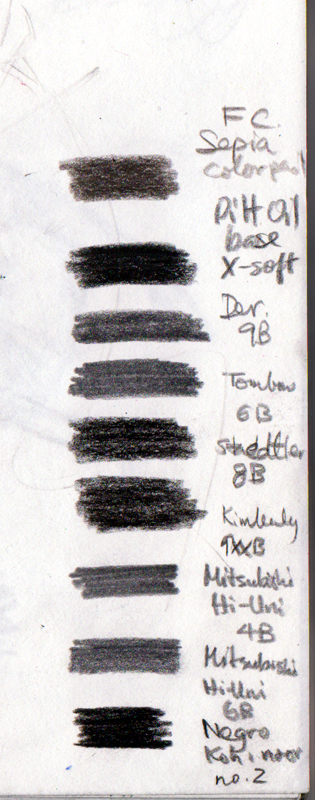 F C.
Sepia
colorpencil
Pitt Oil
base
X-soft
Der.
9B
Tombow
6B
Staedtler
8B
Kimberly
9XXB
Mitsubishi
Hi-Uni
4B
Mitsubishi
Hi-Uni
6B
Negro
Koh i noor
no. 2